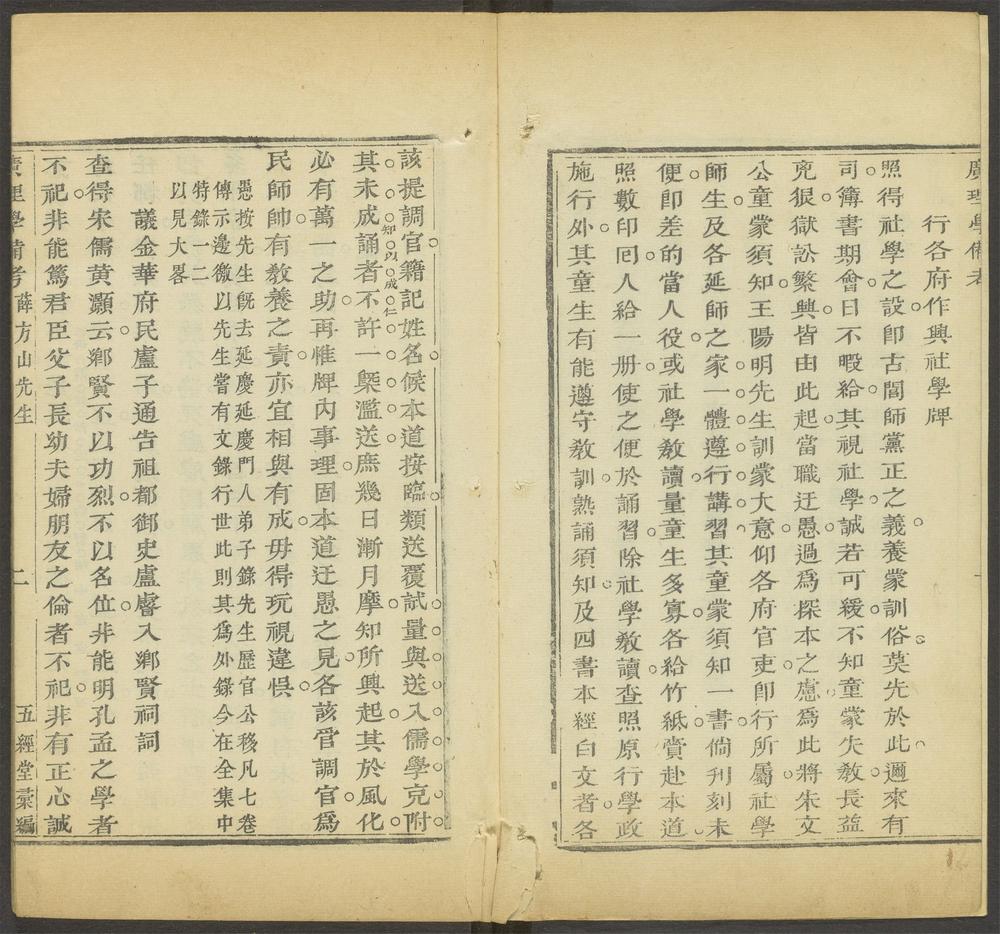 廣理學備考
行各府作興社學牌
照得社學之設卽古閭師黨正之義養蒙訓俗莫先於此邇來有
司簿書期會日不暇給其視社學誠若可緩不知童蒙失教長益
兇狠獄訟繁興皆由此起當職迂愚過爲探本之慮爲此將朱文
公童蒙須知王陽明先生訓蒙大意仰各府官吏卽行所屬社學
師生及各延師之家一體遵行講習其童蒙須知一書倘刋刻未
便卽差的當人役或社學教讀量童生多寡各給竹紙賫赴本道
照數印囘人給一册使之便於誦習除社學教讀查照原行學政
施行外其童生有能遵守教訓熟誦須知及四書本經白文者各
該提調官籍記姓名候本道按臨類送覆試量與送入儒學充附
其未成誦者不許一槩濫送庶幾日漸月摩知所興起其於風化
知以成仁
必有萬一之助再惟牌內事理固本道迂愚之見各該管調官爲
民師帥有教養之責亦宜相與有成毋得玩視違悞
愚按先生旣去延慶延慶門人弟子錄先生歷官公移凡七卷
傳示邊徼以先生嘗有文錄行世此則其爲外錄今在全集中
特錄一二
以見大畧
議金華府民盧子通告祖都御史盧睿入鄉賢祠詞
查得宋儒黃灝云鄉賢不以功烈不以名位非能明孔孟之學者
不祀非能篤君臣父子長幼夫婦朋友之倫者不祀非有正心誠
廣理學備考 薛方山先生 二 五經堂彙編